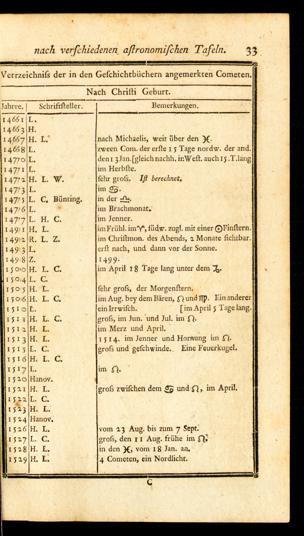 nach verschiedenen astronomischen Tafeln. 33
Verzeichniss der in den Geschichtbüchern angemerkten Cometen.
Nach Christi Geburt.
Jahre. Schriftsteller. Bemerkungen.
1466 L.
1466 H.
1467 H. L. nach Michaelis, weit über den ♓.
1468 L. zween Com. der erste 15 Tage nordw. der and.
1470 L. den 13 Jan. [gleich nachh. in West. auch 15.T.lang
1471 L. im Herbste.
1472 H. L. W. sehr gross. Ist berechnet.
1473 L. im ♋.
1475 L. C. Bünting. in der ♎.
1476 L. im Brachmonat.
1477 L. H. C. im Jenner.
1491 H. L. im Frühl. im ♈, südw. zugl. mit einer ☉Finstern.
1492 R. L. Z. im Christmon. des Abends, 2 Monate sichtbar.
1493 L. erst nach, und dann vor der Sonne.
1498 Z. 1499.
1500 H. L. C. im April 18 Tage lang unter dem ♑.
1504 L. C.
1505 H. L. sehr gross, der Morgenstern.
1506 H. L. C. im Aug. bey dem Bären, ♌ und ♍. Ein anderer
1510 L. ein Irrwisch. [im April 5 Tage lang.
1511 H. L. C. gross, im Jun. und Jul. im ♌.
1512 H. L. im Merz und April.
1513 H. L. 1514. im Jenner und Hornung im ♌.
1515 L. C. gross und geschwinde. Eine Feuerkugel.
1516 H. L. C.
1517 L. im ♌.
1520 Hanov.
1521 H. L. gross zwischen dem ♋ und ♌, im April.
1522 L. C.
1523 H. L.
1524 Hanov.
1526 H. L. vom 23 Aug. bis zum 7 Sept.
1527 L. C. gross, den 11 Aug. frühe im ♌.
1528 H. L. in den ♓, vom 18 Jan. an.
1529 H. L. 4 Cometen, ein Nordlicht.
C